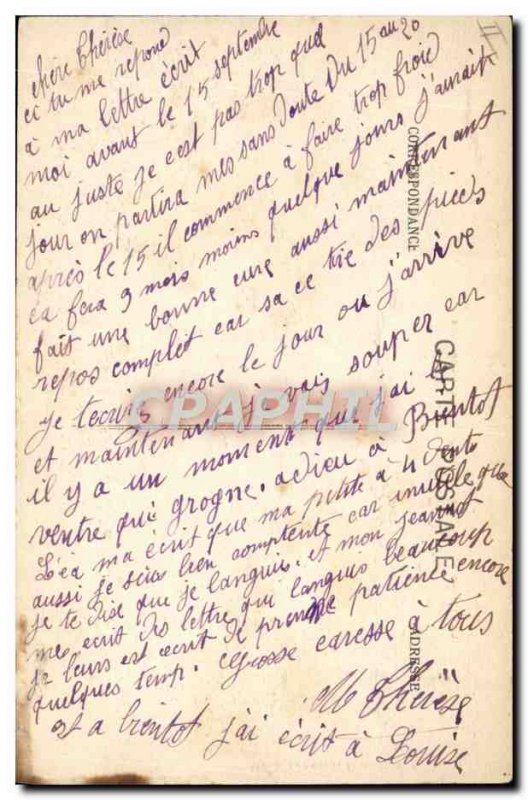 chère Thérèse
ci tu me repond
à ma lettre écrit
moi avant le 15 septembre
au juste je c'est pas trop quel
jour on partira mes sans doute Du 15 au 20
après le 15 il commence à faire trop froid
ca fera 3 mois moins quelque jours j'aurait
fait une bonne cure aussi maintenant
repos complêt car sa ce tire des pieds
je tecrirs encore le jour ou j'arrive
et maintenant je vais souper car
il y a un moment que j'ai le
ventre qui grogne. adieu à Bientot
Léa ma écrit que ma petite à 4 dents
aussi je suis bien comptente car inutile que
je te dise que je languis. et mon jeannot
mes écrit des lettre qui languis beaucoup
je leurs est écrit de prendre patience encore
quelques temp. Grosse caresse à tous
M Thérèse
est a bientot j'ai écrit à Louise
CORRESPONDANCE
CARTE POSTALE
ADRESSE
CPAPHIL
II